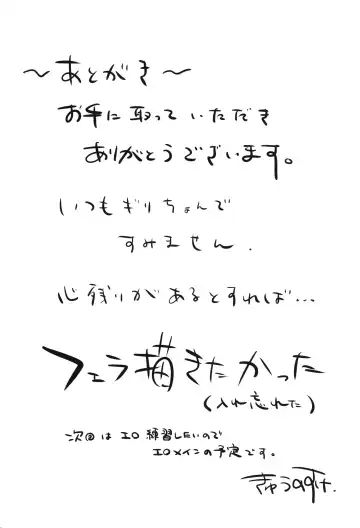 ～あとがき～
お手に取っていただき
ありがとうございます。
いつもギリちょんで
すみません.
心残りがあるとすれば…
フェラ描きたかった
(入れ忘れた)
次回はエロ練習したいので
エロメインの予定です。